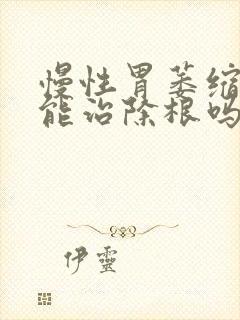 慢性胃萎缩
能治除根吗
伊靈